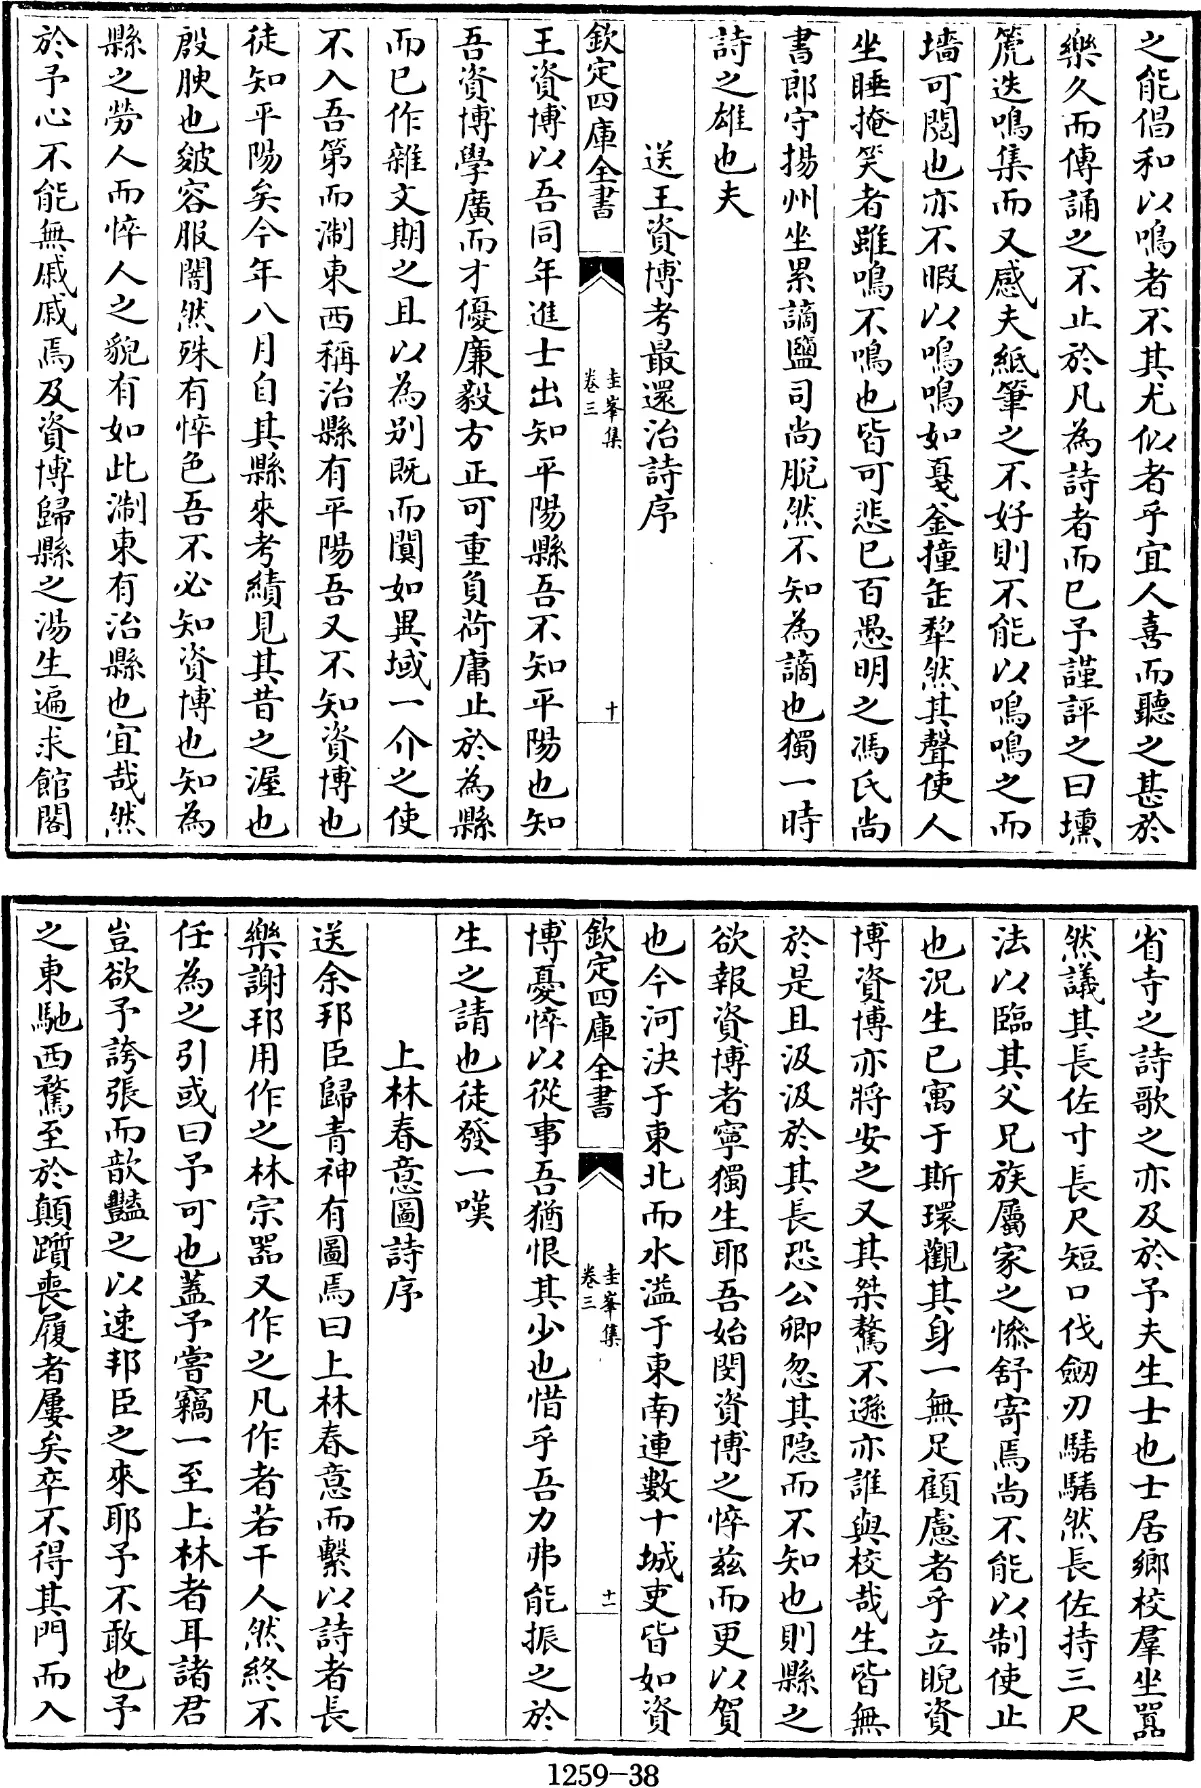 之能倡和以鳴者不其尤似者乎宜人喜而聽之甚於
樂久而傳誦之不止於凡為詩者而已予謹評之曰壎
篪迭鳴集而又感夫紙筆之不好則不能以鳴鳴之而
墻可閲也亦不暇以鳴鳴如戛釜撞缶犂然其聲使人
坐睡掩笑者雖鳴不鳴也皆可悲已百愚明之馮氏尚
書郎守揚州坐累謫鹽司尚脱然不知為謫也獨一時
詩之雄也夫
送王資博考最還治詩序
欽定四庫全書
圭峯集
卷三
十
王資博以吾同年進士出知平陽縣吾不知平陽也知
吾資博學廣而才優廉毅方正可重負荷庸止於為縣
而已作雜文期之且以為别既而闃如異域一介之使
不入吾第而淛東西稱治縣有平陽吾又不知資博也
徒知平陽矣今年八月自其縣來考績見其昔之渥也
殷腴也皴容服闇然殊有悴色吾不必知資博也知為
縣之勞人而悴人之貌有如此淛東有治縣也宜哉然
於予心不能無戚戚焉及資博歸縣之湯生遍求館閣
省寺之詩歌之亦及於予夫生士也士居鄉校羣坐嚚
然議其長佐寸長尺短口伐劒刃騞騞然長佐持三尺
法以臨其父兄族屬家之慘舒寄焉尚不能以制使止
也況生已寓于斯環觀其身一無足顧慮者乎立睨資
博資博亦將安之又其桀驁不遜亦誰與校哉生皆無
於是且汲汲於其長恐公卿忽其隱而不知也則縣之
欲報資博者寧獨生耶吾始閔資博之悴兹而更以賀
也今河決于東北而水溢于東南連數十城吏皆如資
欽定四庫全書
圭峯集
卷三
十一
博憂悴以從事吾猶恨其少也惜乎吾力弗能振之於
生之請也徒發一嘆
上林春意圖詩序
送余邦臣歸青神有圖焉曰上林春意而繫以詩者長
樂謝邦用作之林宗器又作之凡作者若干人然終不
任為之引或曰予可也蓋予嘗竊一至上林者耳諸君
豈欲予誇張而歆豔之以速邦臣之來耶予不敢也予
之東馳西騖至於顛躓喪履者屢矣卒不得其門而入
1259-38